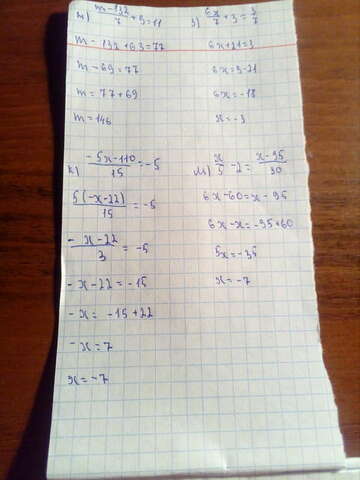 m-132/7 + 9 = 11
m - 132 + 63 = 77
m - 69 = 77
m = 77 + 69
m = 146
з) 6x/7 + 3 = 3/7
6x + 21 = 3
6x = 3 - 21
6x = -18
x = -3
к) -5x-110/15 = -5
5(-x-22)/15 = -5
-x-22/3 = -5
-x-22 = -15
-x = -15 + 22
-x = 7
x = -7
x/5 - 2 = x-95/30
6x - 60 = x - 95
6x - x = -95 + 60
5x = -35
x = -7